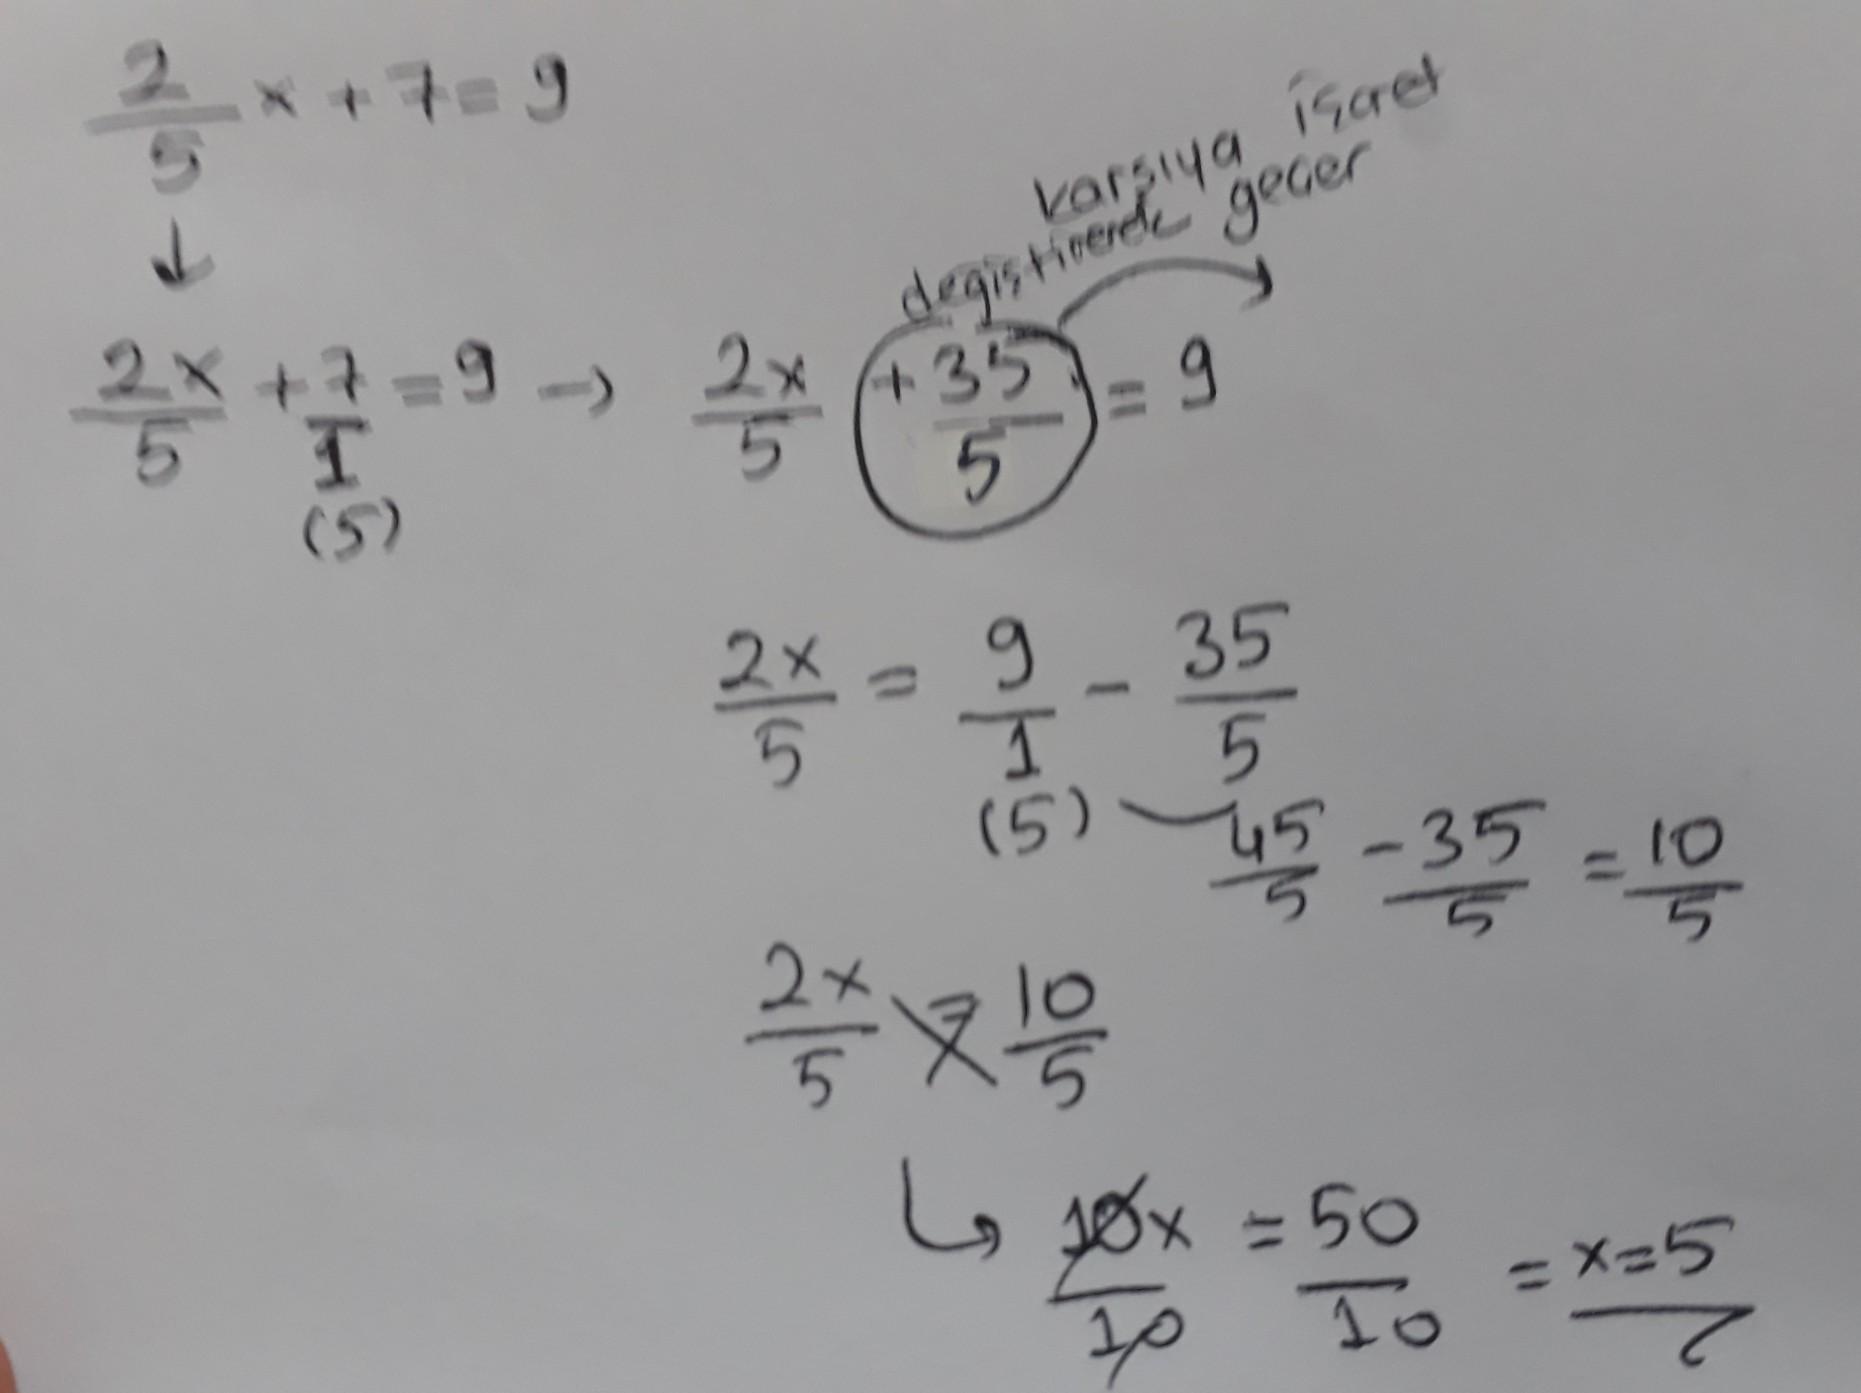 2/5 x + 7 = 9
↓
2x/5 + 7/1 = 9 → 2x/5 + 35/5 = 9
(5)
işaret
değiştirerek karşıya geçer
2x/5 = 9/1 - 35/5
(5) 45/5 - 35/5 = 10/5
2x/5 = 10/5
10x/10 = 50/10 = x = 5